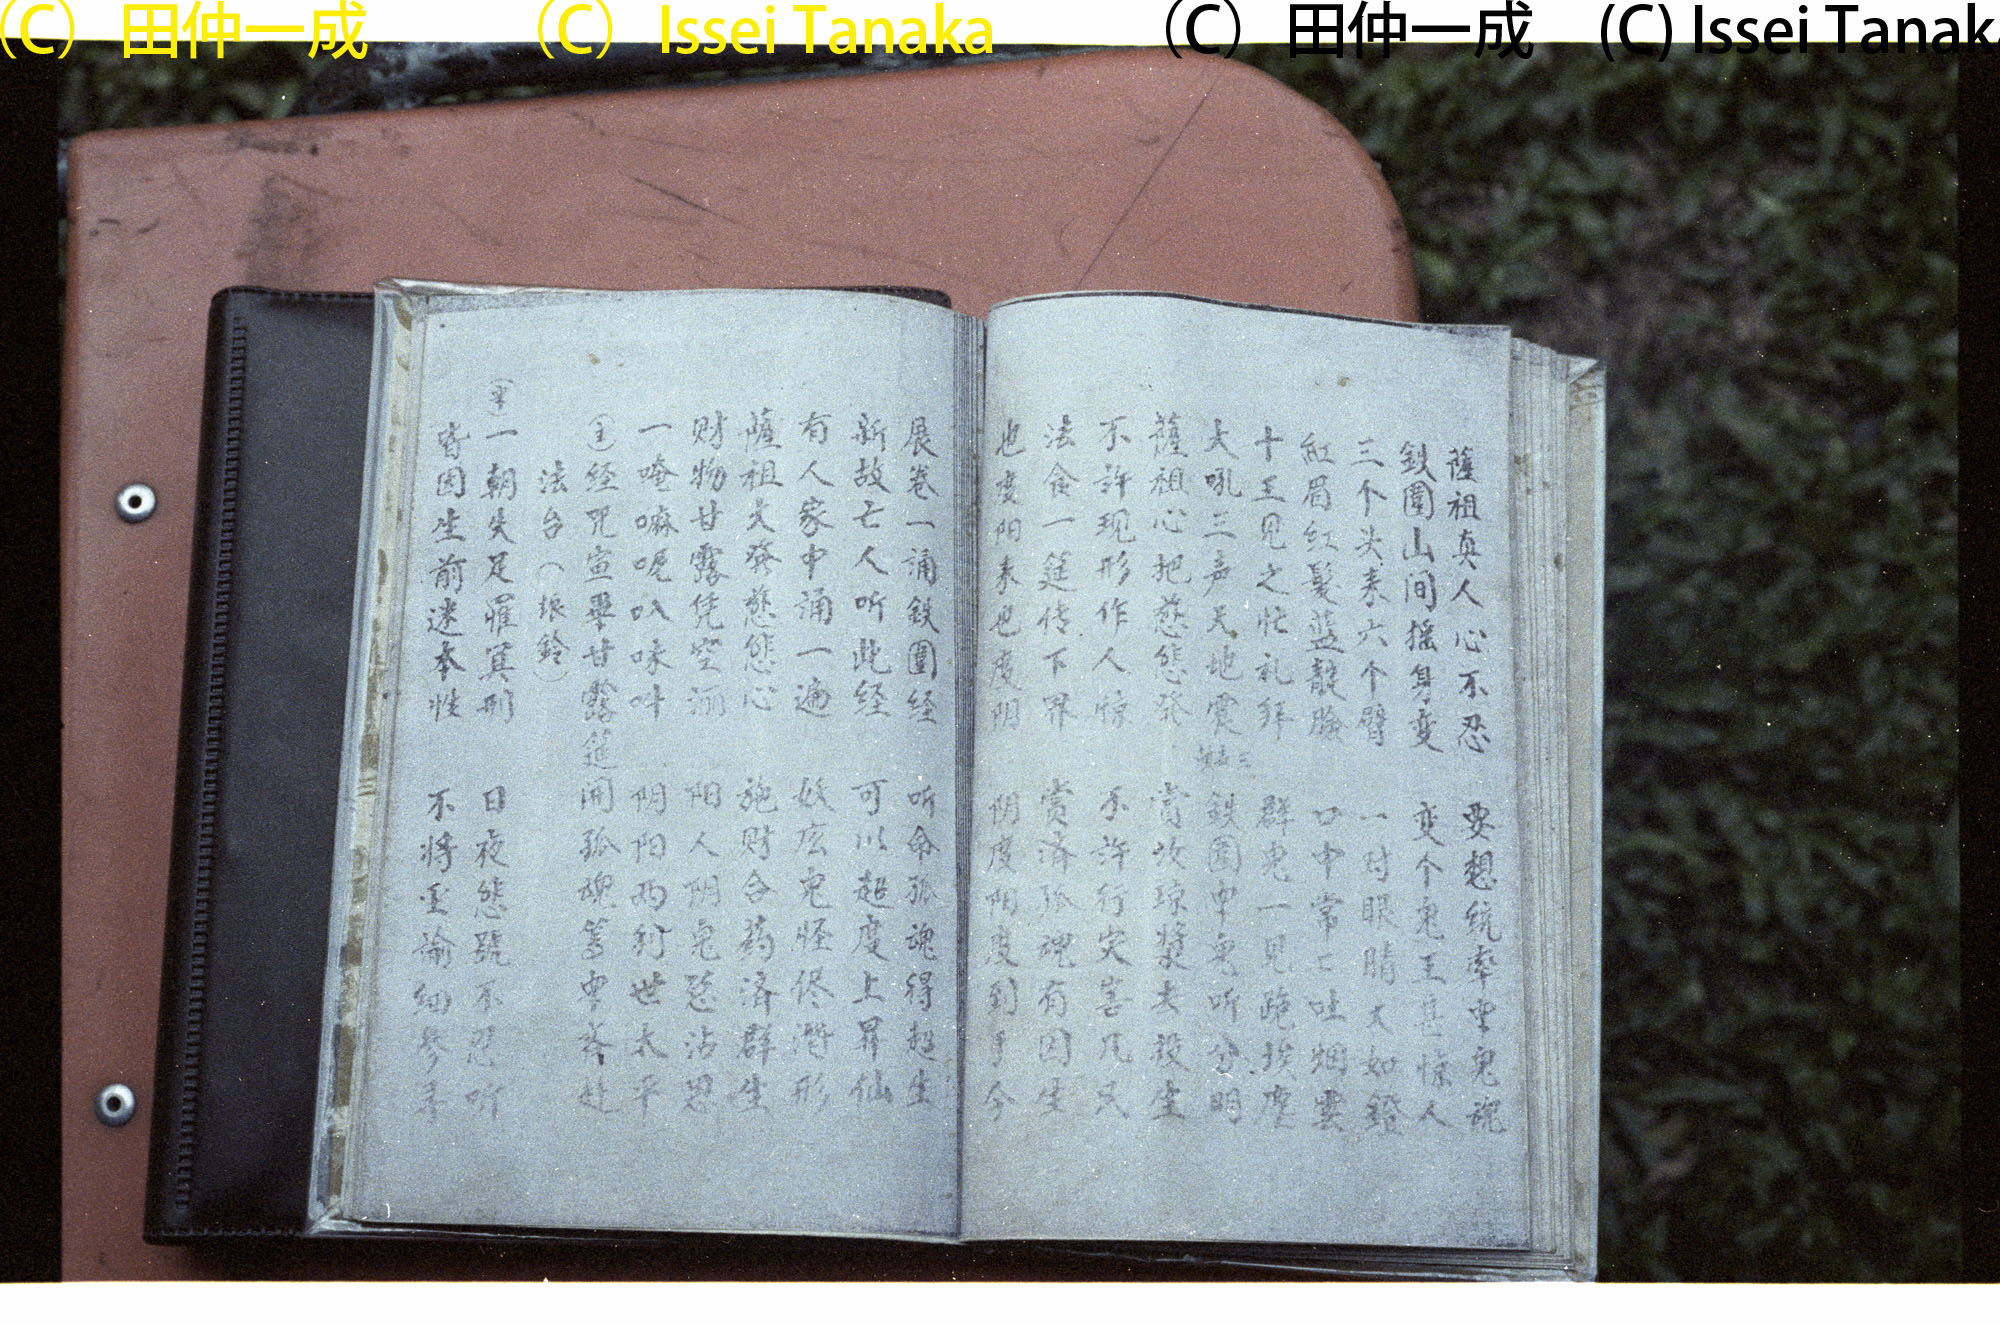 （C） 田仲一成 （C） Issei Tanaka （C） 田仲一成 (C) Issei Tanaka
薩祖真人心不忍 要想统率里鬼魂
鉄圍山间摇身变 变个鬼王甚惊人
三个头来六个臂 一对眼睛大如鐙
紅眉红髮藍靛臉 口中常々吐烟雲
十王见之忙礼拜 群鬼一见跪埃塵
大吼三声天地震 鉄圍中鬼听分明
薩祖心把慈悲發 賞汝琼漿去投生
不許现形作人惊 不許行灾害凡民
法食一筵传下界 賞济孤魂有因生
也度阳来也度阴 阴度阳度到于今
展卷一誦鉄圍经 听命孤魂得超生
新故亡人听此经 可以超度上昇仙
有人家中誦一遍 妖庅鬼怪终潛形
薩祖大發慈悲心 施财合葯济群生
财物甘露凭空洒 阳人阴鬼总沾恩
一唵嘛呢叭咪吽 阴阳两利世太平
主 经咒宣畢甘露筵開孤魂等众齐赴
法台（振鈴）
（平）一朝失足罹冥刑 日夜悲號不忍听
皆因生前迷本性 不将至論細參寻